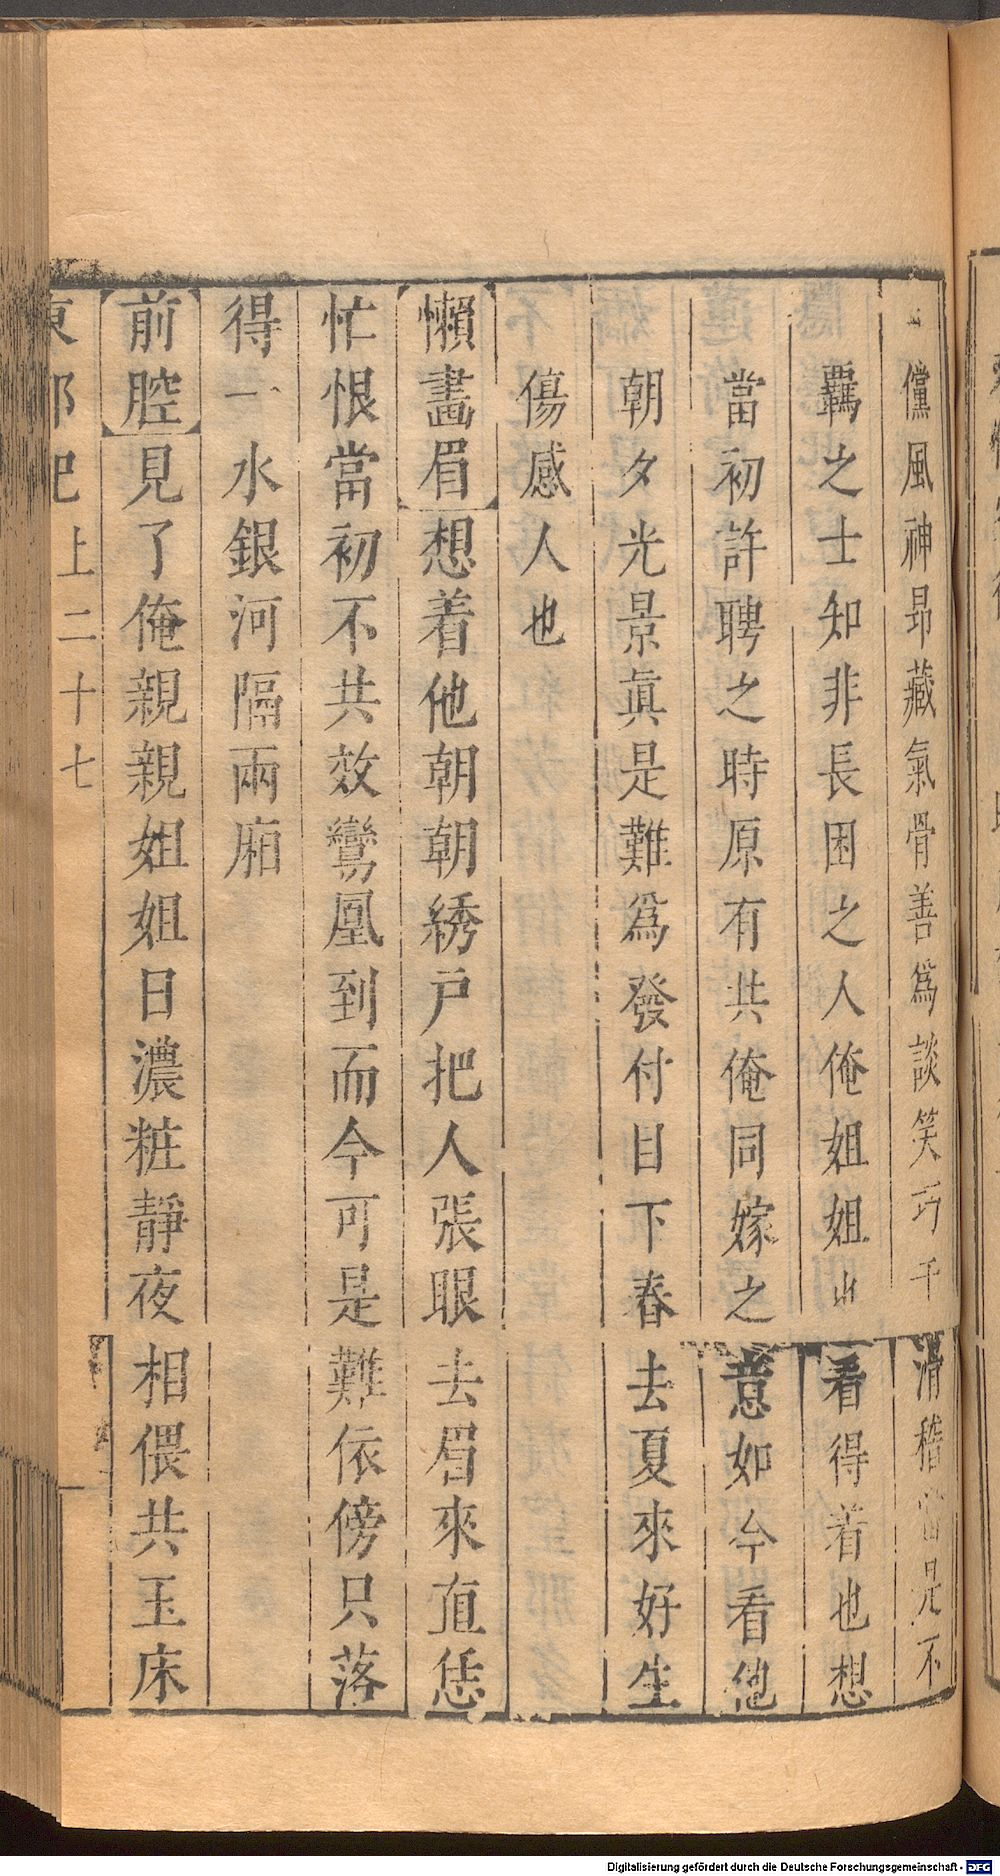 儻風神昻藏氣骨善爲談笑巧千滑稽當見不
羈之士知非長困之人俺姐姐看得着也想
當初許聘之時原有共俺同嫁之意如今看他
朝夕光景眞是難爲發付目下春去夏來好生
傷感人也
懶畫眉想着他朝朝朝綉戶把人張眼去眉來直恁
忙恨當初不共效鸞凰到而今可是難依傍只落
得一水銀河隔兩廂
前腔見了俺親親姐姐日濃粧靜夜相偎共玉床
東郭記上二十七
Digitalisierung gefördert durch die Deutsche Forschungsgemeinschaft - DFG